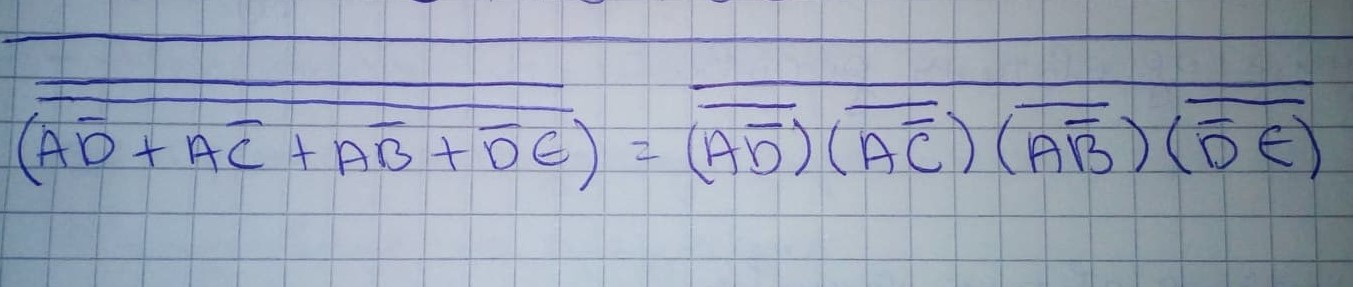 $\overline{\overline{(A\overline{D} + A\overline{C} + A\overline{B} + \overline{D}E)}} = \overline{(\overline{A\overline{D}})(\overline{A\overline{C}})(\overline{A\overline{B}})(\overline{\overline{D}E})}$